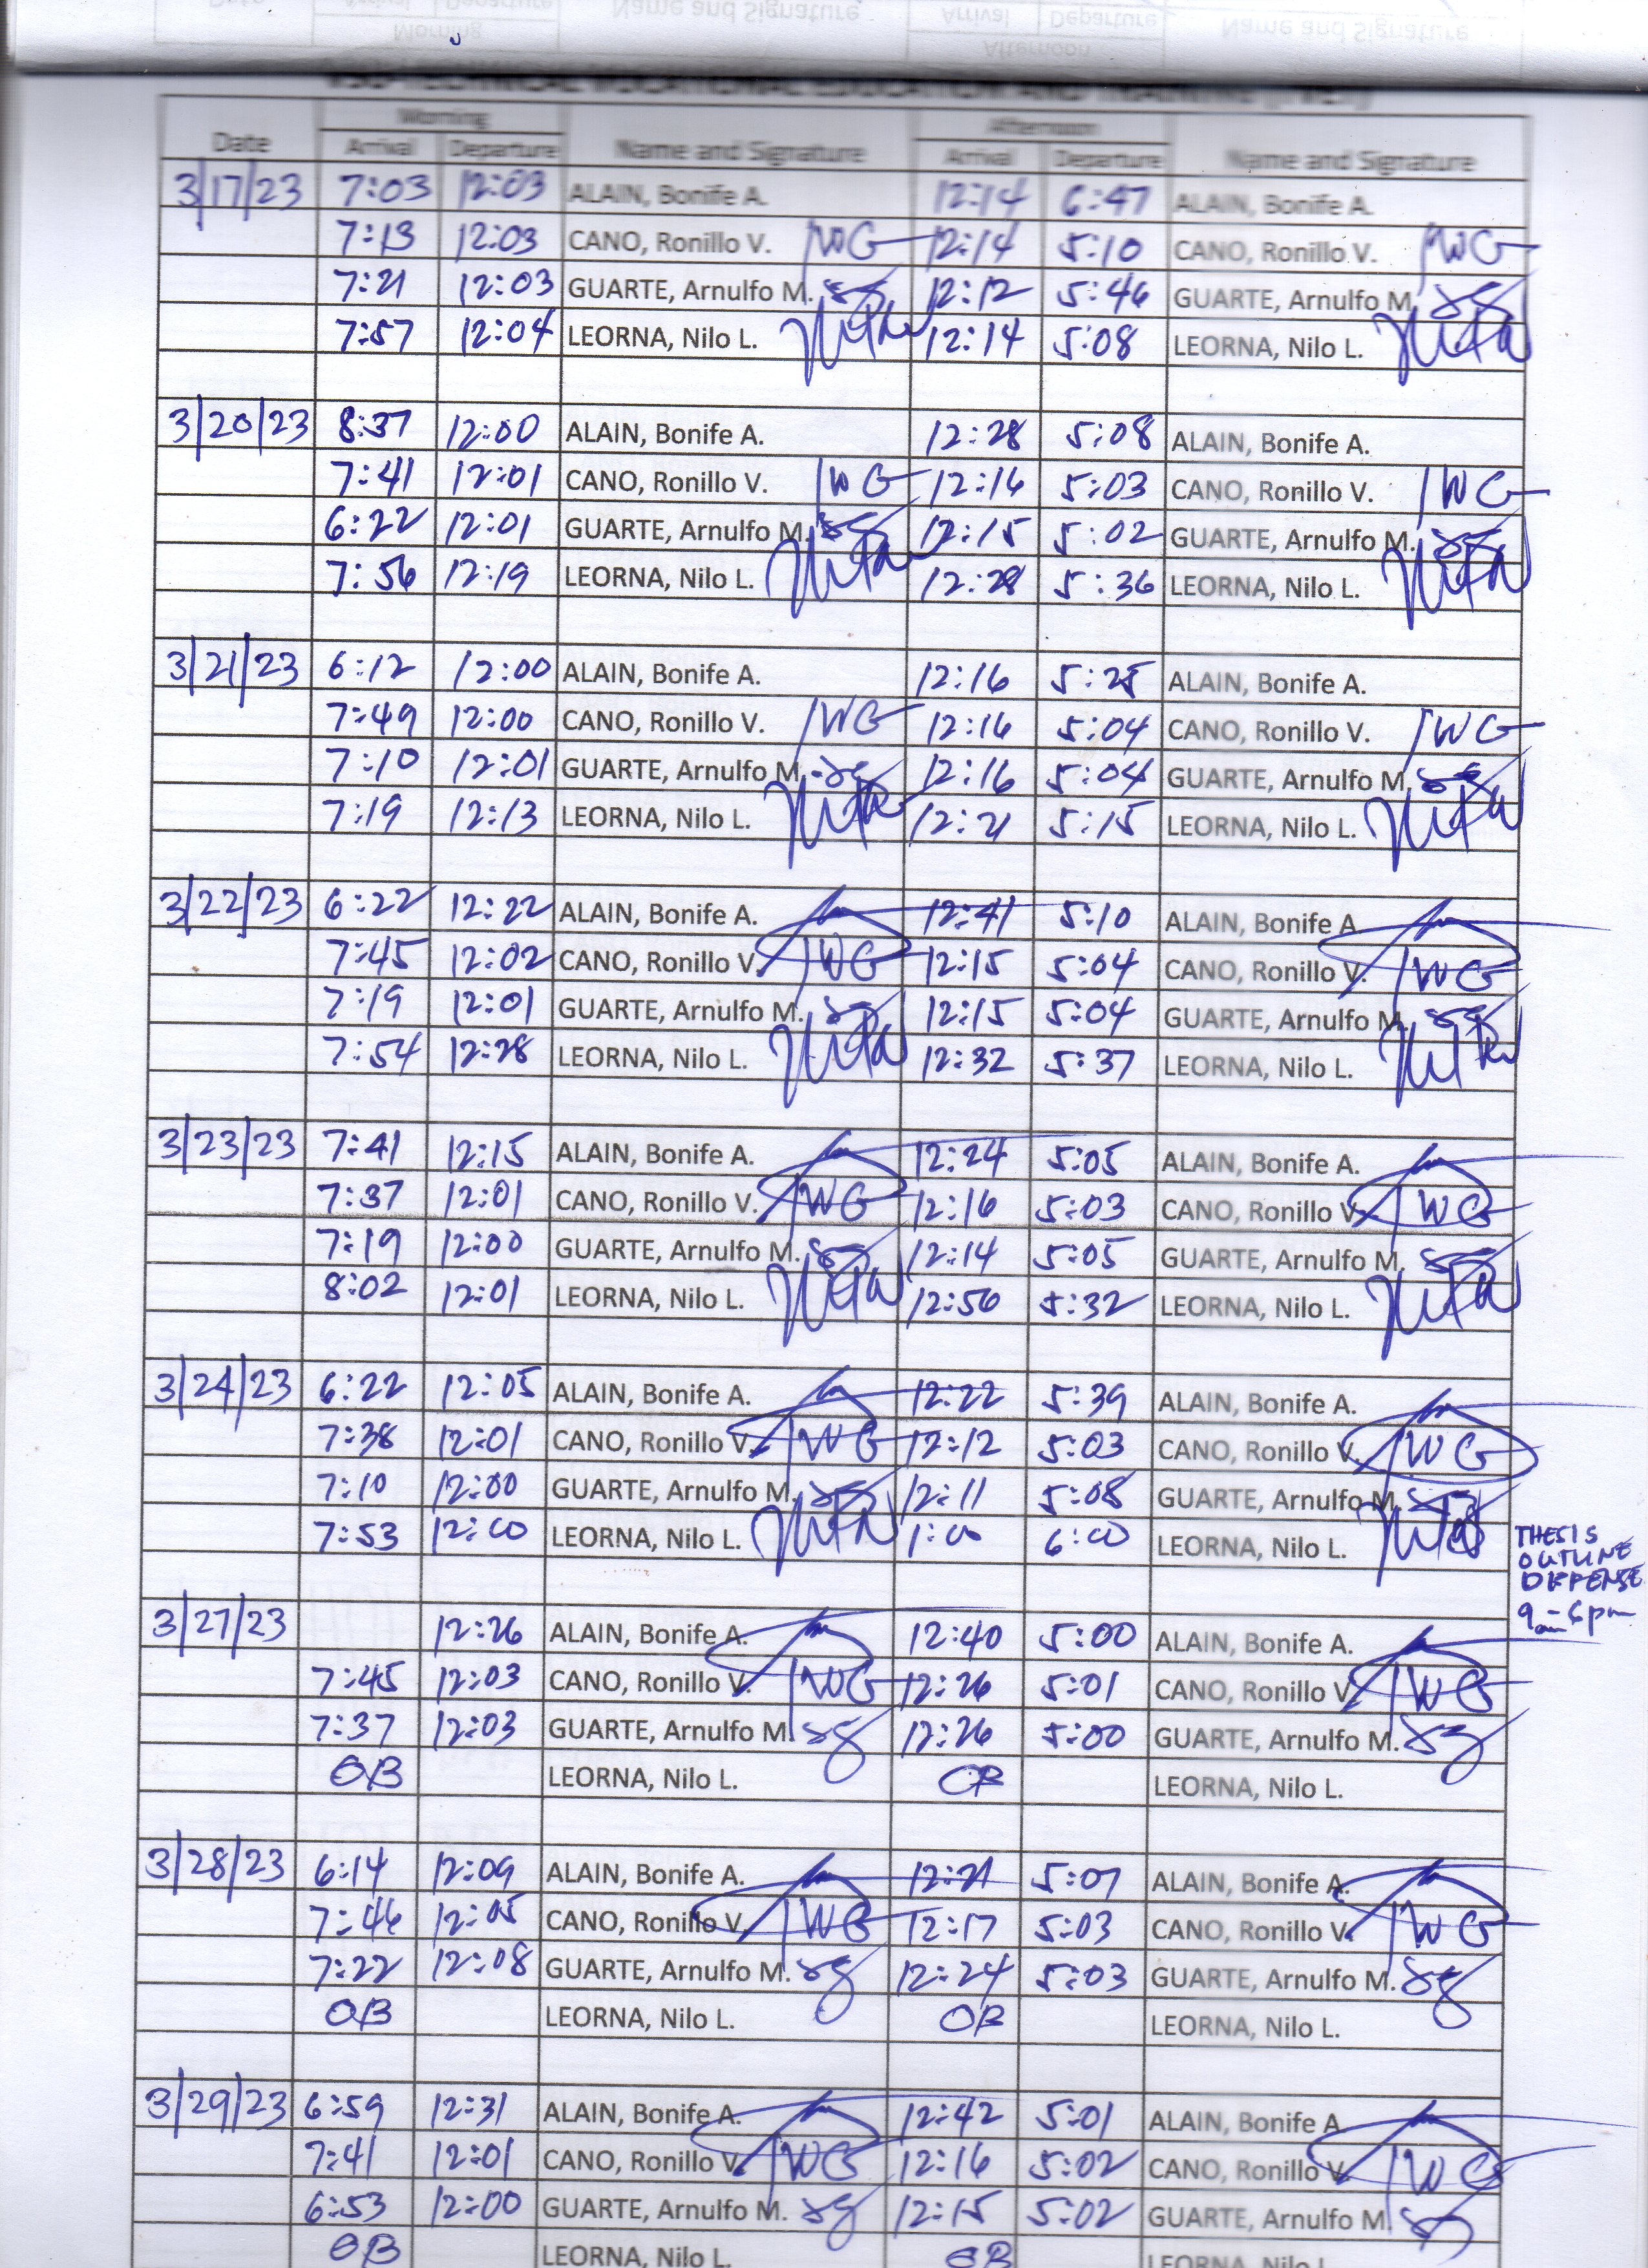 VSU-TECHNICAL VOCATIONAL EDUCATION AND TRAINING
Morning Afternoon
Date Arrival Departure Name and Signature Arrival Departure Name and Signature
3/17/23 7:03 12:03 ALAIN, Bonife A. 12:14 6:47 ALAIN, Bonife A.
7:13 12:03 CANO, Ronillo V. 12:14 5:10 CANO, Ronillo V.
7:21 12:03 GUARTE, Arnulfo M. 12:12 5:46 GUARTE, Arnulfo M.
7:57 12:04 LEORNA, Nilo L. 12:14 5:08 LEORNA, Nilo L.
3/20/23 8:37 12:00 ALAIN, Bonife A. 12:28 5:08 ALAIN, Bonife A.
7:41 12:01 CANO, Ronillo V. 12:16 5:03 CANO, Ronillo V.
6:22 12:01 GUARTE, Arnulfo M. 12:15 5:02 GUARTE, Arnulfo M.
7:56 12:19 LEORNA, Nilo L. 12:28 5:36 LEORNA, Nilo L.
3/21/23 6:12 12:00 ALAIN, Bonife A. 12:16 5:25 ALAIN, Bonife A.
7:49 12:00 CANO, Ronillo V. 12:16 5:04 CANO, Ronillo V.
7:10 12:01 GUARTE, Arnulfo M. 12:16 5:04 GUARTE, Arnulfo M.
7:19 12:13 LEORNA, Nilo L. 12:21 5:15 LEORNA, Nilo L.
3/22/23 6:22 12:22 ALAIN, Bonife A. 12:41 5:10 ALAIN, Bonife A.
7:45 12:02 CANO, Ronillo V. 12:15 5:04 CANO, Ronillo V.
7:19 12:01 GUARTE, Arnulfo M. 12:15 5:04 GUARTE, Arnulfo M.
7:54 12:28 LEORNA, Nilo L. 12:32 5:37 LEORNA, Nilo L.
3/23/23 7:41 12:15 ALAIN, Bonife A. 12:24 5:05 ALAIN, Bonife A.
7:37 12:01 CANO, Ronillo V. 12:16 5:03 CANO, Ronillo V.
7:19 12:00 GUARTE, Arnulfo M. 12:14 5:05 GUARTE, Arnulfo M.
8:02 12:01 LEORNA, Nilo L. 12:56 5:32 LEORNA, Nilo L.
3/24/23 6:22 12:05 ALAIN, Bonife A. 12:22 5:39 ALAIN, Bonife A.
7:38 12:01 CANO, Ronillo V. 12:12 5:03 CANO, Ronillo V.
7:10 12:00 GUARTE, Arnulfo M. 12:11 5:08 GUARTE, Arnulfo M.
7:53 12:00 LEORNA, Nilo L. 1:00 6:00 LEORNA, Nilo L.
THESIS
OUTLINE
DEFENSE
9am-6pm
3/27/23 12:26 ALAIN, Bonife A. 12:40 5:00 ALAIN, Bonife A.
7:45 12:03 CANO, Ronillo V. 12:26 5:01 CANO, Ronillo V.
7:37 12:03 GUARTE, Arnulfo M. 12:26 5:00 GUARTE, Arnulfo M.
OB LEORNA, Nilo L. OB LEORNA, Nilo L.
3/28/23 6:14 12:09 ALAIN, Bonife A. 12:21 5:07 ALAIN, Bonife A.
7:46 12:05 CANO, Ronillo V. 12:17 5:03 CANO, Ronillo V.
7:22 12:08 GUARTE, Arnulfo M. 12:24 5:03 GUARTE, Arnulfo M.
OB LEORNA, Nilo L. OB LEORNA, Nilo L.
3/29/23 6:59 12:31 ALAIN, Bonife A. 12:42 5:01 ALAIN, Bonife A.
7:41 12:01 CANO, Ronillo V. 12:16 5:02 CANO, Ronillo V.
6:53 12:00 GUARTE, Arnulfo M. 12:15 5:02 GUARTE, Arnulfo M.
OB LEORNA, Nilo L. OB LEORNA, Nilo L.